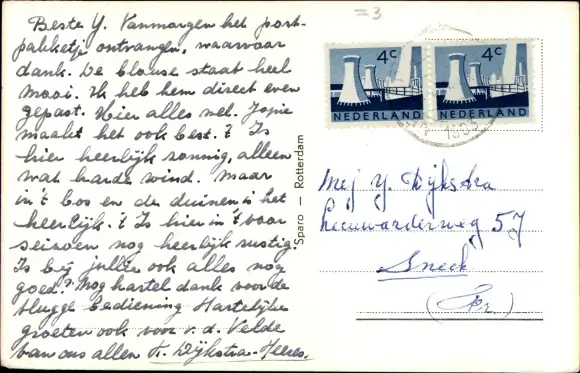 =3
Beste Y. Vanmorgen het post-
pakketje ontvangen, waarvoor
dank. De blouse staat heel
mooi. Ik heb hem direct even
gepast. Hier alles wel. Jopie
maakt het ook best. 't Is
hier heerlijk zonnig, alleen
wat harde wind. Maar
in 't bos en de duinen is het
heerlijk. 't Is hier in 't voor
seizoen nog heerlijk rustig.
Is bij jullie ook alles nog
goed? Nog hartel dank voor de
vlugge bediening Hartelijke
groeten ook voor v. d. Velde
van ons allen Dijkstra-Heeres.
Sparo — Rotterdam
4c
NEDERLAND
4c
NEDERLAND
Mej Y. Dijkstra
Leeuwarderweg 57
Sneek
(Fr.)